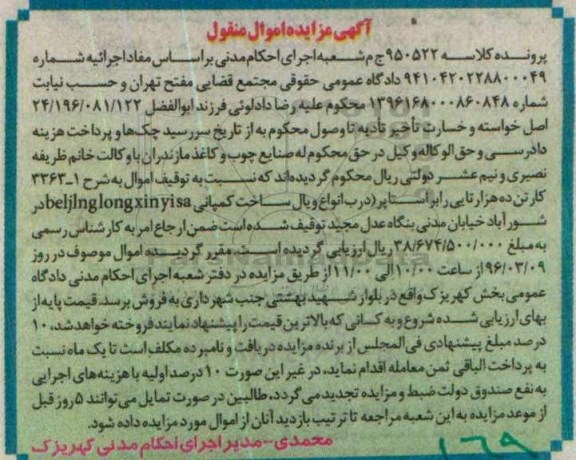 آگهی مزایده اموال منقول
پرونده کلاسه ۹۵۰۵۲۲ ج م شعبه اجرای احکام مدنی بر اساس مفاد اجرائیه شماره
۹۴۱۰۴۲۰۲۲۸۸۰۰۰۴۹ دادگاه عمومی حقوقی مجتمع قضایی مفتح تهران و حسب نیابت
شماره ۱۳۹۶۱۶۸۰۰۰۸۶۰۸۴۸ محکوم علیه رضا دادلوئی فرزند ابوالفضل ۲۴/۱۹۶/۰۸۱/۱۲۲
اصل خواسته و خسارت تأخیر تأدیه تا وصول محکوم به از تاریخ سررسید چک‌ها و پرداخت هزینه
دادرسی و حق الوکاله وکیل در حق محکوم له صنایع چوب و کاغذ مازندران با وکالت خانم ظریفه
نصیری و نیم عشر دولتی ریال محکوم گردیده‌اند که نسبت به توقیف اموال به شرح ۱-۳۳۶۳
کارتن ده هزارتایی رابر استاپر (درب انواع ویال ساخت کمپانی beljlnglongxinyisa در
شورآباد خیابان مدنی بنگاه عدل مجید توقیف شده است ضمن ارجاع امر به کارشناس رسمی
به مبلغ ۳۸/۶۷۴/۵۰۰/۰۰۰ ریال ارزیابی گردیده است. مقرر گردیده اموال موصوف در روز
۹۶/۰۳/۰۹ از ساعت ۱۰/۰۰ الی ۱۱/۰۰ از طریق مزایده در دفتر شعبه اجرای احکام مدنی دادگاه
عمومی بخش کهریزک واقع در بلوار شهید بهشتی جنب شهرداری به فروش برسد. قیمت پایه از
بهای ارزیابی شده شروع و به کسانی که بالاترین قیمت را پیشنهاد نمایند فروخته خواهد شد، ۱۰
درصد مبلغ پیشنهادی فی المجلس از برنده مزایده دریافت و نامبرده مکلف است تا یک ماه نسبت
به پرداخت الباقی ثمن معامله اقدام نماید، در غیر این صورت ۱۰ درصد اولیه با هزینه‌های اجرایی
به نفع صندوق دولت ضبط و مزایده تجدید می‌گردد، طالبین در صورت تمایل می‌توانند ۵ روز قبل
از موعد مزایده به این شعبه مراجعه تا ترتیب بازدید آنان از اموال مورد مزایده داده شود.
محمدی - مدیر اجرای احکام مدنی کهریزک
۱۶۹